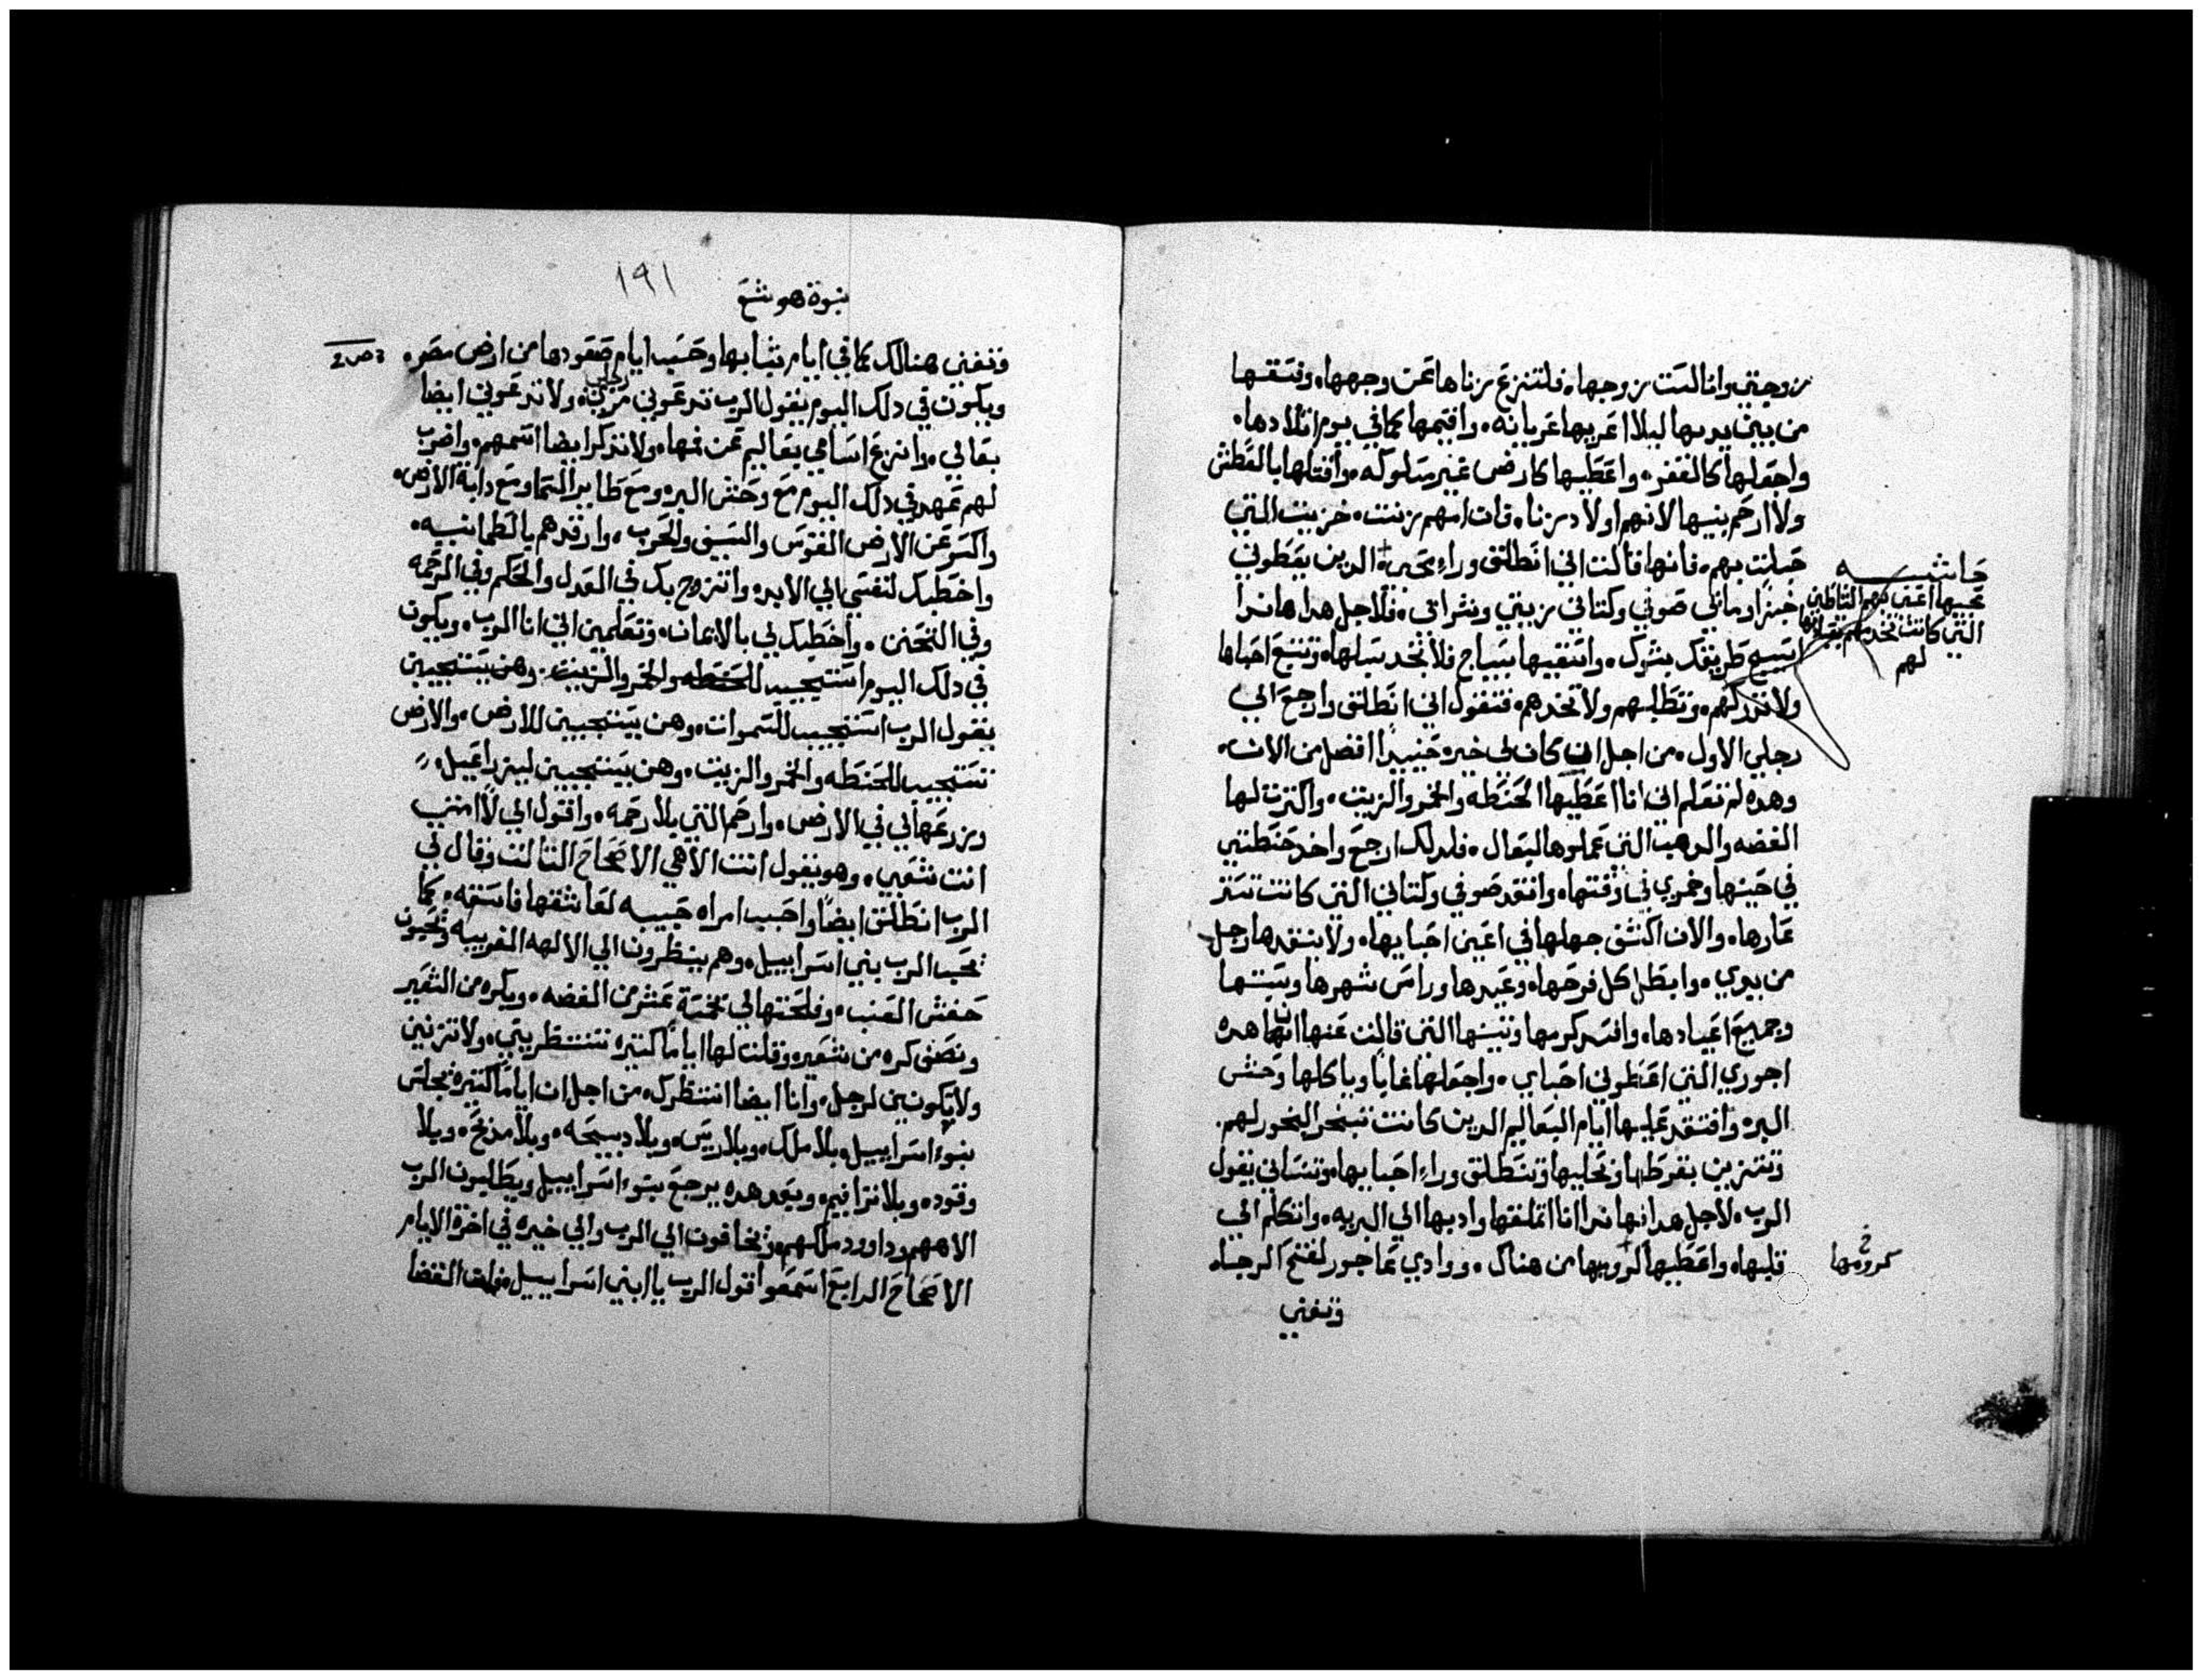 زوجتي وانا لست زوجها، فلتنزع زناها عن وجهها، وفسقها
من بين يديها ليلا اعريها عريانه، واقيمها كما في يوم اتلادها،
واجعلها كالقفر، واعطيها كارض غير مسلوكه، واقتلها بالعطش
ولا ارحم بنيها لانهم اولاد زنا، فان امهم زنت، خزيت التي
حبلت بهم، فانها قالت اني انطلق وراء محبي الدين يعطوني
خبزا ومائي صوفي وكتاني زيتي وشرابي، فلاجل هدا هاندا
اسيج طريقك بشوك، واسقيها بسياج فلا تجد سبلها، وتتبع احباها
ولا تدركهم، وتطلبهم ولا تجدهم، فتقول اني انطلق وارجع الي
رجلي الاول، من اجل ان كان لي خيره حينيدا افضل من الان،
وهده لم تعلم اني انا اعطيها الحنطه والخمر والزيت، واكترت لها
الفضه والدهب التي عملوها لبعال، فلدلك ارجع واخد حنطتي
في حينها وخمري في وقتها، وانقد صوفي وكتاني التي كانت تستر
عارها، والان اكشف جهلها في اعين احبايها، ولا ينقدها رجل
من يدي، وابطل كل فرحها، وعيدها وراس شهرها وسبتها
وجميع اعيادها، وافسد كرمها وتينها التي قالت عنها انها هده
اجوري التي اعطوني احباي، واجعلها غابا وياكلها وحش
البر، وافتقد عليها ايام البعاليم الدين كانت تبخر البخور لهم،
وتتزين بقرطها وتحليها وتنطلق وراء احبايها، وتنساني يقول
الرب، لاجل هدا نها ندا انا اتملقها وادبها الي البريه، واتكلم الي
قلبها، واعطيها كروميها من هناك، ووادي عاجور لفتح الرجا،
وتغني
حاشيه
محبيها اعني بهم الشياطين
التي كانت تخدمهم بقرابينها
لهم
خ
كرومها
١٩١
نبوة هوشع
وتغني هنالك كما في ايام شبابها وحسب ايام صعودها من ارض مصر،
ويكون في دلك اليوم يقول الرب تدعوني رجلي، ولا تدعوني ايضا
بعالي، وانزع اسامي بعاليم عن فمها، ولا تذكر ايضا اسمهم، واضرب
لهم عهد في دلك اليوم مع وحش البر، ومع طاير السما ومع دابة الارض،
واكسر عن الارض القوس والسيف والحرب، وارقدهم بالطمانيه،
واخطبك لنفسي الي الابد، واتزوج بك في العدل والحكم وفي الرحمه
وفي التحنن، واخطبك لي بالايمان، وتعلمين اني انا الرب، ويكون
في دلك اليوم استجيب للحنطه والخمر والزيت، وهن يستجيبين
يقول الرب استجيب للسموات، وهن يستجيبين للارض، والارض
تستجيب للحنطه والخمر والزيت، وهن يستجيبين ليزراعيل،
وزرعها لي في الارض، وارحم التي بلا رحمه، واقول الي لا امتي
انت شعبي، وهو يقول انت الاهي الاصحاح التالت وقال لي
الرب انطلق ايضا واحبب امراه حبيبه لعاشقها فاسقه، كما
تحب الرب بني اسراييل، وهم ينظرون الي الالهه الغريبه وتحبون
حفش العنب، وفلحتها لي بخمسة عشر من الفضه، وبكره من الشعير
ونصف كره من شعير، وقلت لها اياما كتيره تنتظريني، ولا تزنين
ولا تكونين لرجل، وانا ايضا انتظرك، من اجل ان اياما كتيره تجلس
بنوء اسراييل بلا ملك، وبلا ريس، وبلا دبيحه، وبلا مدبح، وبلا
وفوده، وبلا ترافيم، وبعد هده يرجع بنوء اسراييل ويطلبون الرب
الاههم وداوود ملكهم، وتخافون الي الرب والي خيره في اخرة الايام
الاصحاح الرابع اسمعوا قول الرب يا ابني اسراييل فان القضا